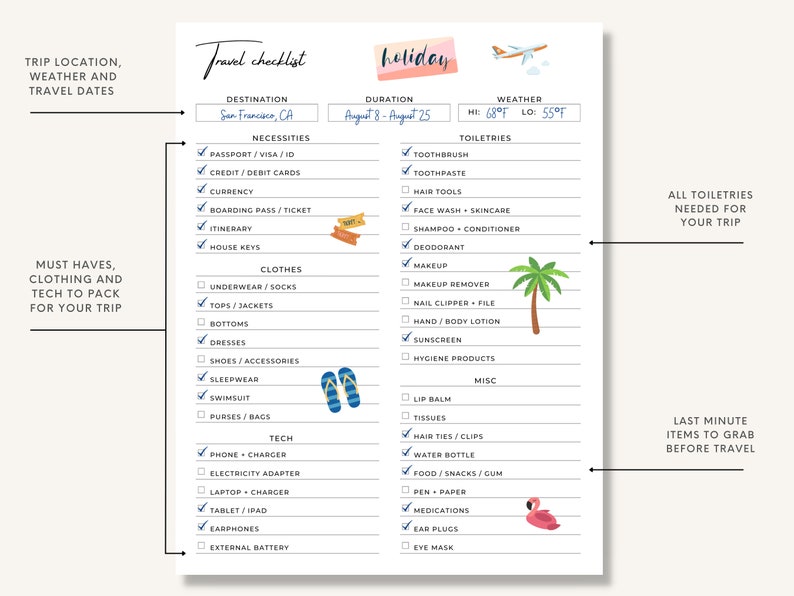 Travel checklist
holiday
TRIP LOCATION,
WEATHER AND
TRAVEL DATES
DESTINATION
San Francisco, CA
DURATION
August 8 - August 25
WEATHER
HI: 68°F LO: 55°F
MUST HAVES,
CLOTHING AND
TECH TO PACK
FOR YOUR TRIP
NECESSITIES
PASSPORT / VISA / ID
CREDIT / DEBIT CARDS
CURRENCY
BOARDING PASS / TICKET
ITINERARY
HOUSE KEYS
TICKET
TICKET
CLOTHES
UNDERWEAR / SOCKS
TOPS / JACKETS
BOTTOMS
DRESSES
SHOES / ACCESSORIES
SLEEPWEAR
SWIMSUIT
PURSES / BAGS
TECH
PHONE + CHARGER
ELECTRICITY ADAPTER
LAPTOP + CHARGER
TABLET / IPAD
EARPHONES
EXTERNAL BATTERY
TOILETRIES
TOOTHBRUSH
TOOTHPASTE
HAIR TOOLS
FACE WASH + SKINCARE
SHAMPOO + CONDITIONER
DEODORANT
MAKEUP
MAKEUP REMOVER
NAIL CLIPPER + FILE
HAND / BODY LOTION
SUNSCREEN
HYGIENE PRODUCTS
MISC
LIP BALM
TISSUES
HAIR TIES / CLIPS
WATER BOTTLE
FOOD / SNACKS / GUM
PEN + PAPER
MEDICATIONS
EAR PLUGS
EYE MASK
ALL TOILETRIES
NEEDED FOR
YOUR TRIP
LAST MINUTE
ITEMS TO GRAB
BEFORE TRAVEL